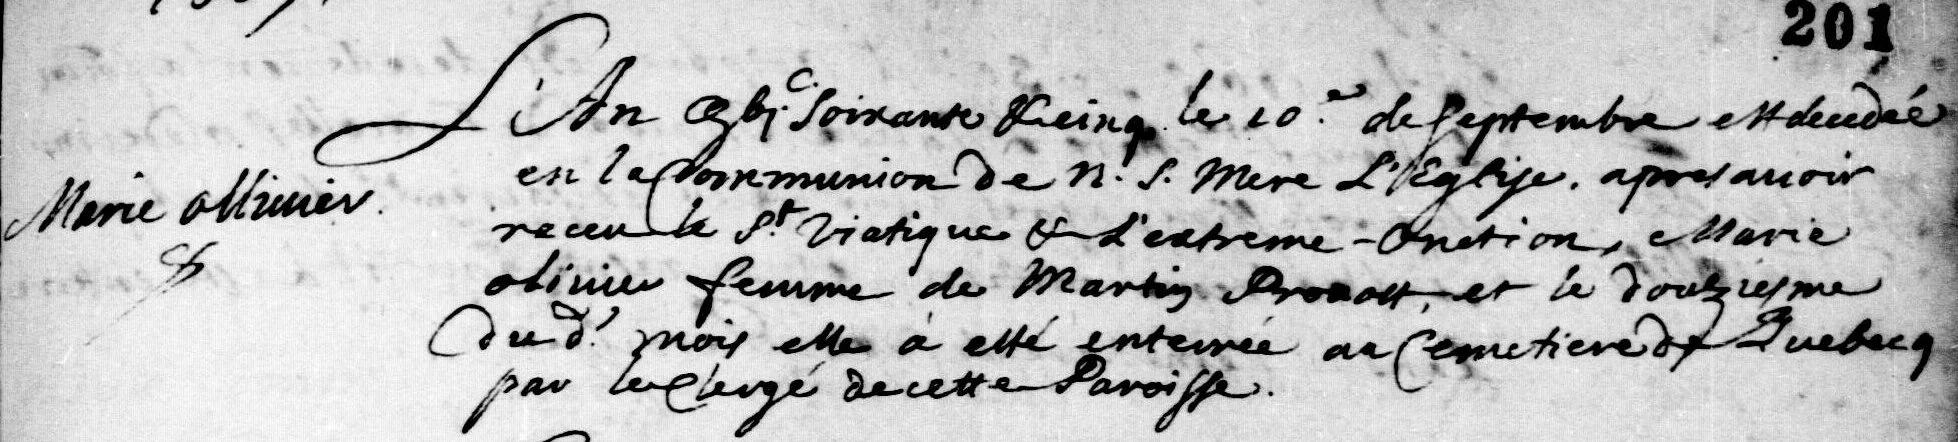 201
L'An gbjc. soixante & cinq le 10.e de Septembre est decedée
en la Communion de N. S. Mere L'Eglise. apres auoir
receu le St. Viatique & L'extreme-Onction, Marie
Marie olliuier.
oliuier femme de Martin Prouost, et le douziesme
du d. mois elle à esté enterrée au Cemetiere de Quebecq
par le Clergé de cette Paroisse.